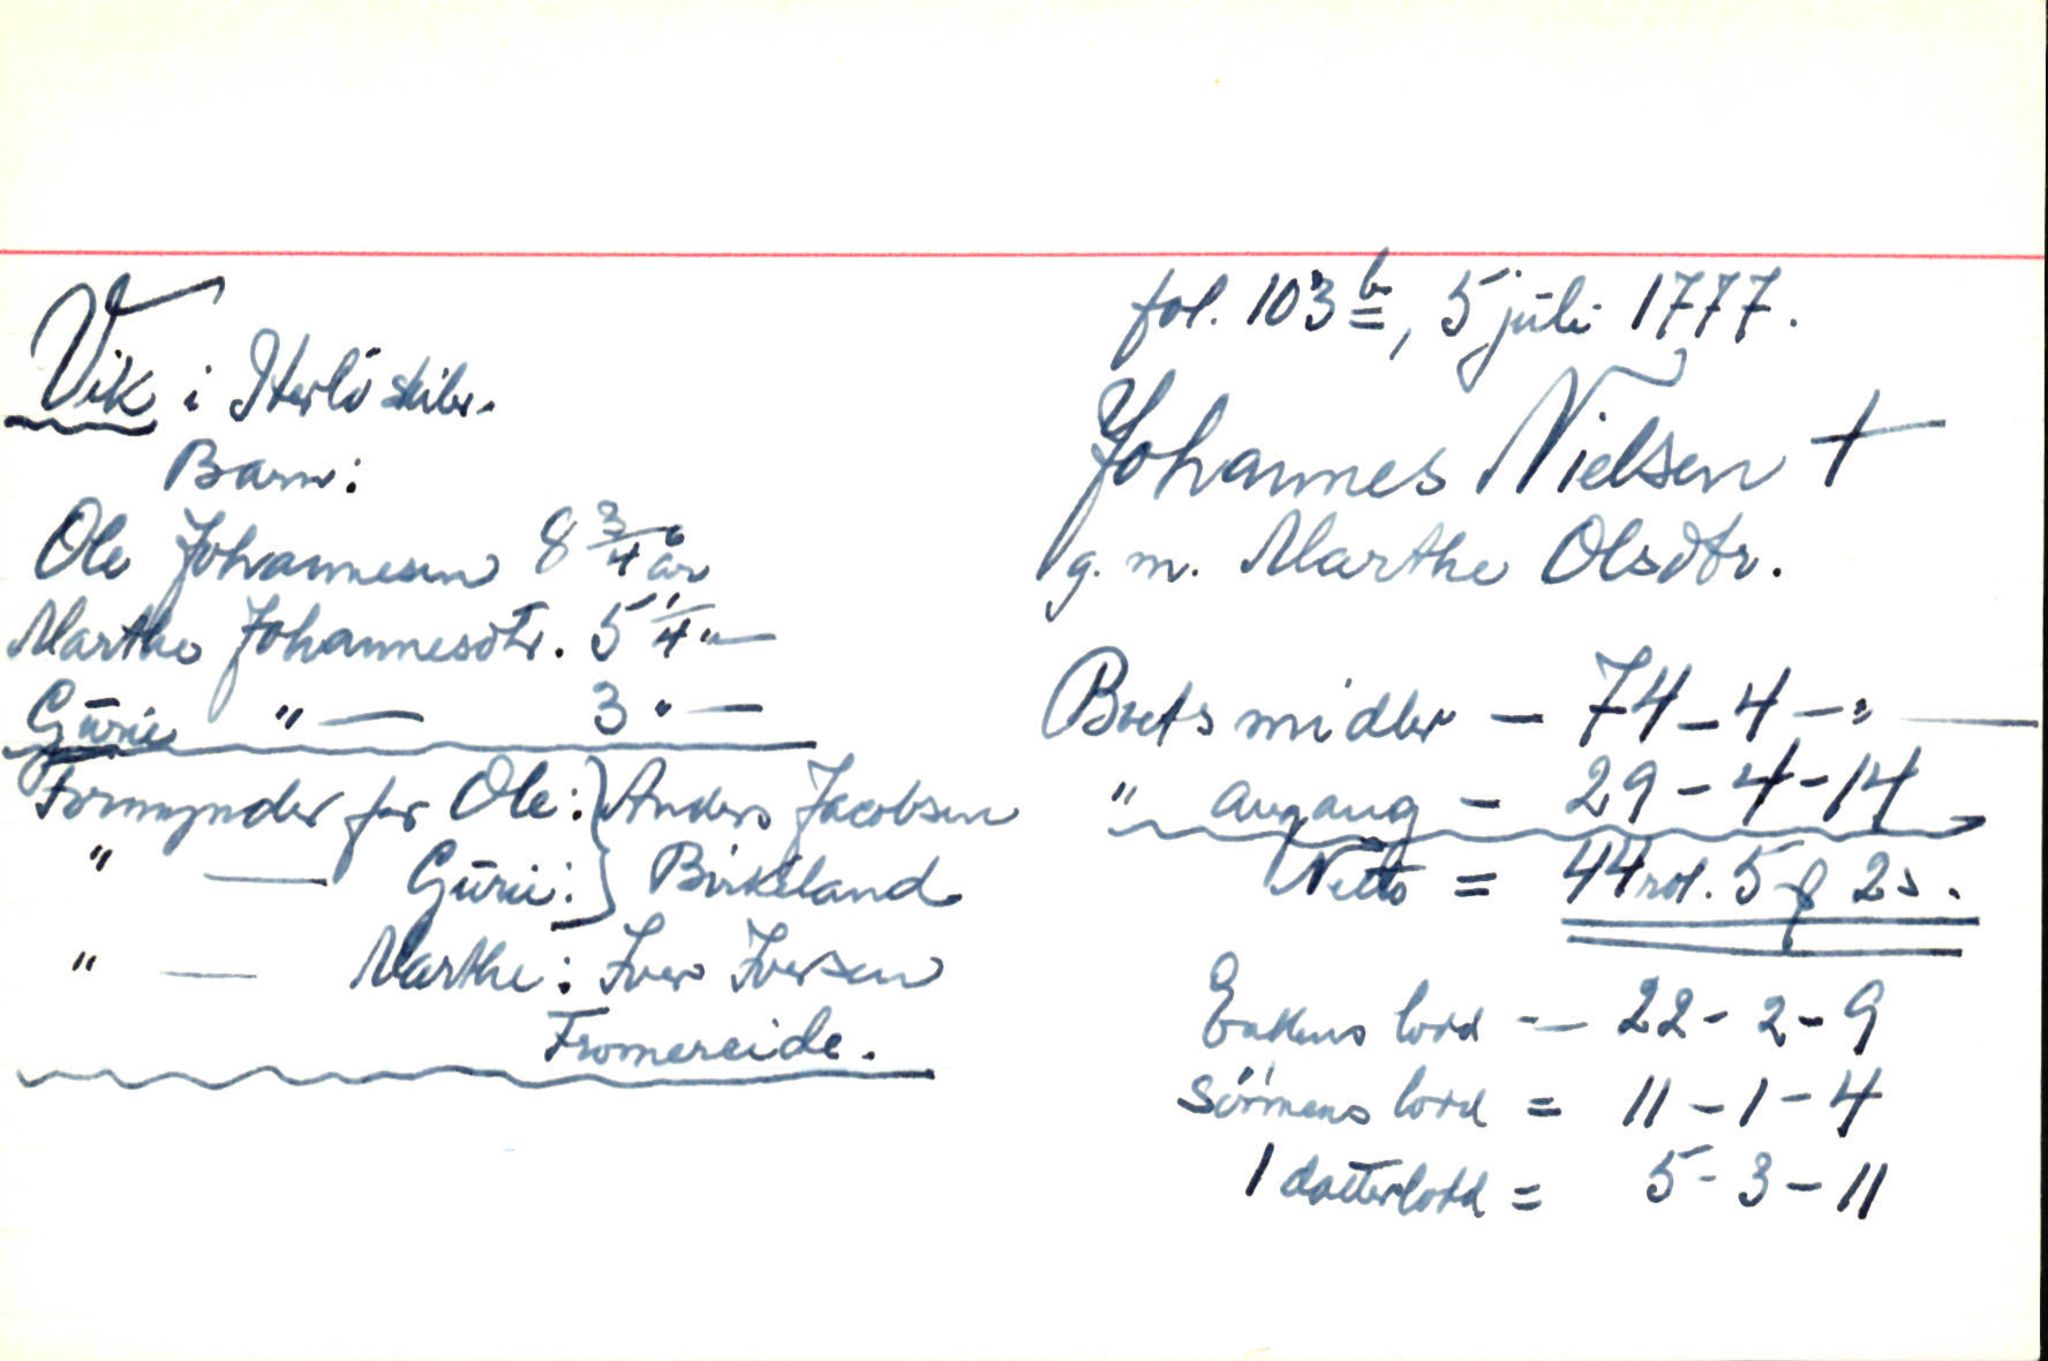 Vik i Herlö skibr.
Barn:
Ole Johannesen 8 3/4 år
Marthe Johannesdtr. 5 1/4 " —
Gurie " — 3 " —
Formynder for Ole: } Anders Jacobsen
" — Gurie: } Birkeland
" — Marthe: Iver Iversen
Fromereide.
fol. 103 b, 5 juli 1777.
Johannes Nielsen †
g. m. Marthe Olsdtr.
Boets midler — 74 – 4 – " —
" avgang — 29 – 4 – 14
Netto = 44 rd. 5 ꝑ 2 s.
Enkens lodd — 22 – 2 – 9
Sönnens lodd = 11 – 1 – 4
1 datterlodd = 5 – 3 – 11